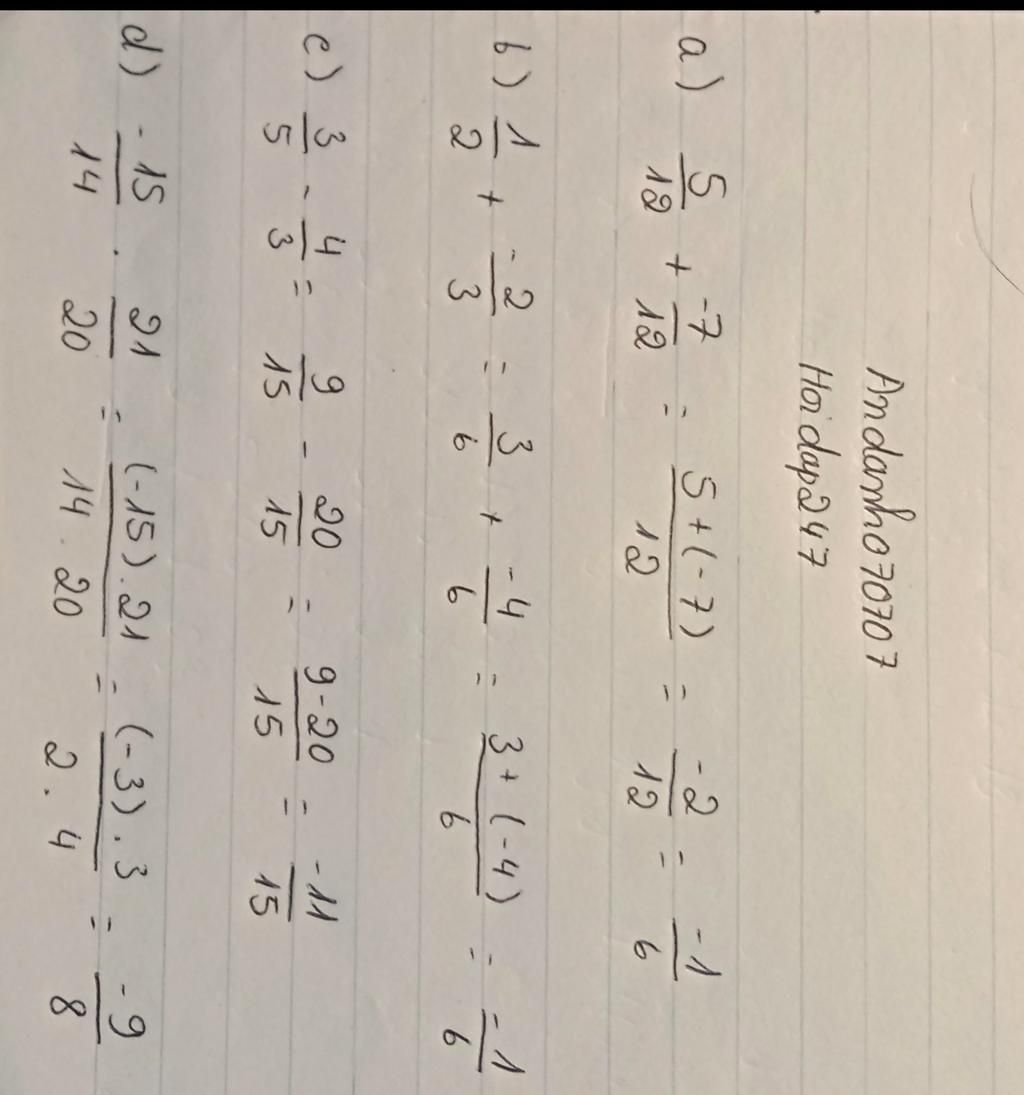 Andanh070707
Hoidap247
a) 5/12 + -7/12 = 5+(-7)/12 = -2/12 = -1/6
b) 1/2 + -2/3 = 3/6 + -4/6 = 3+(-4)/6 = -1/6
c) 3/5 - 4/3 = 9/15 - 20/15 = 9-20/15 = -11/15
d) -15/14 . 21/20 = (-15).21/14.20 = (-3).3/2.4 = -9/8